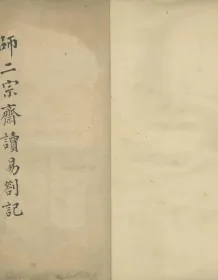 師二宗齋讀易劄記